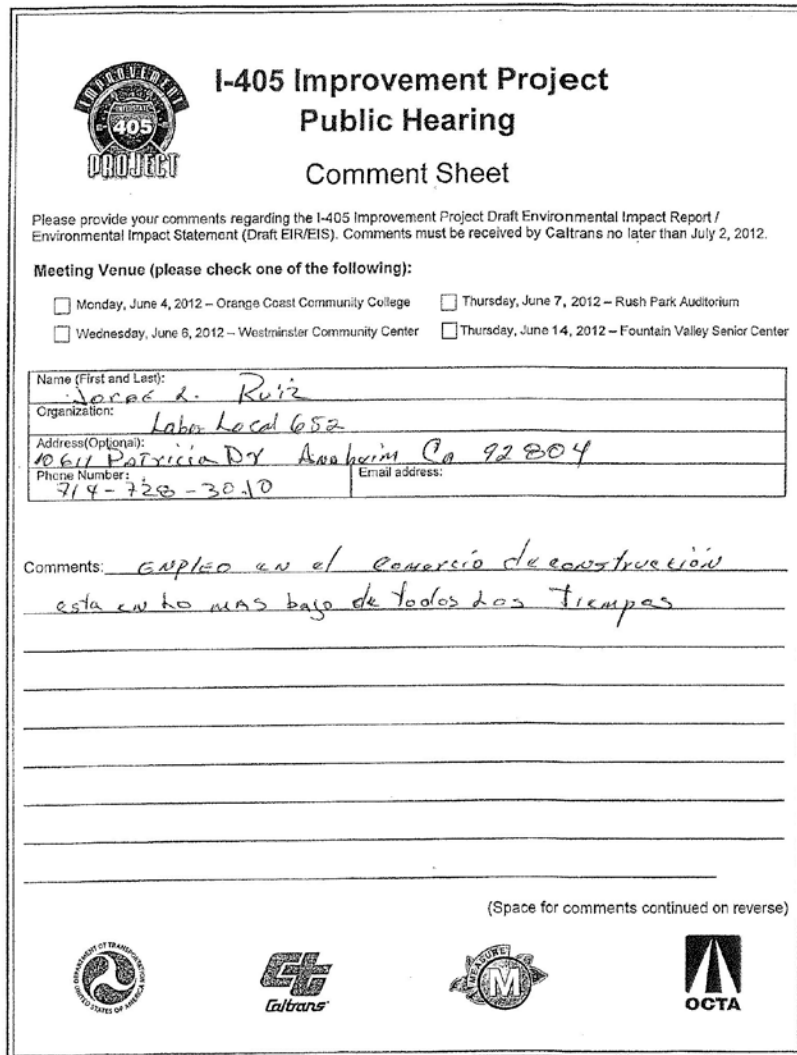 IMPROVEMENT
INTERSTATE
405
PROJECT
I-405 Improvement Project
Public Hearing
Comment Sheet
Please provide your comments regarding the I-405 Improvement Project Draft Environmental Impact Report /
Environmental Impact Statement (Draft EIR/EIS). Comments must be received by Caltrans no later than July 2, 2012.
Meeting Venue (please check one of the following):
Monday, June 4, 2012 – Orange Coast Community College
Thursday, June 7, 2012 – Rush Park Auditorium
Wednesday, June 6, 2012 – Westminster Community Center
Thursday, June 14, 2012 – Fountain Valley Senior Center
Name (First and Last): Jorge L. Ruiz
Organization: Labor Local 652
Address(Optional): 10611 Patricia Dr Anaheim Ca 92804
Phone Number: 714-728-3010
Email address:
Comments: ENPLEO en el comercio de construcción
esta en Lo mas bajo de todos Los Tiempos
(Space for comments continued on reverse)
DEPARTMENT OF TRANSPORTATION
UNITED STATES OF AMERICA
Caltrans
MEASURE
M
OCTA